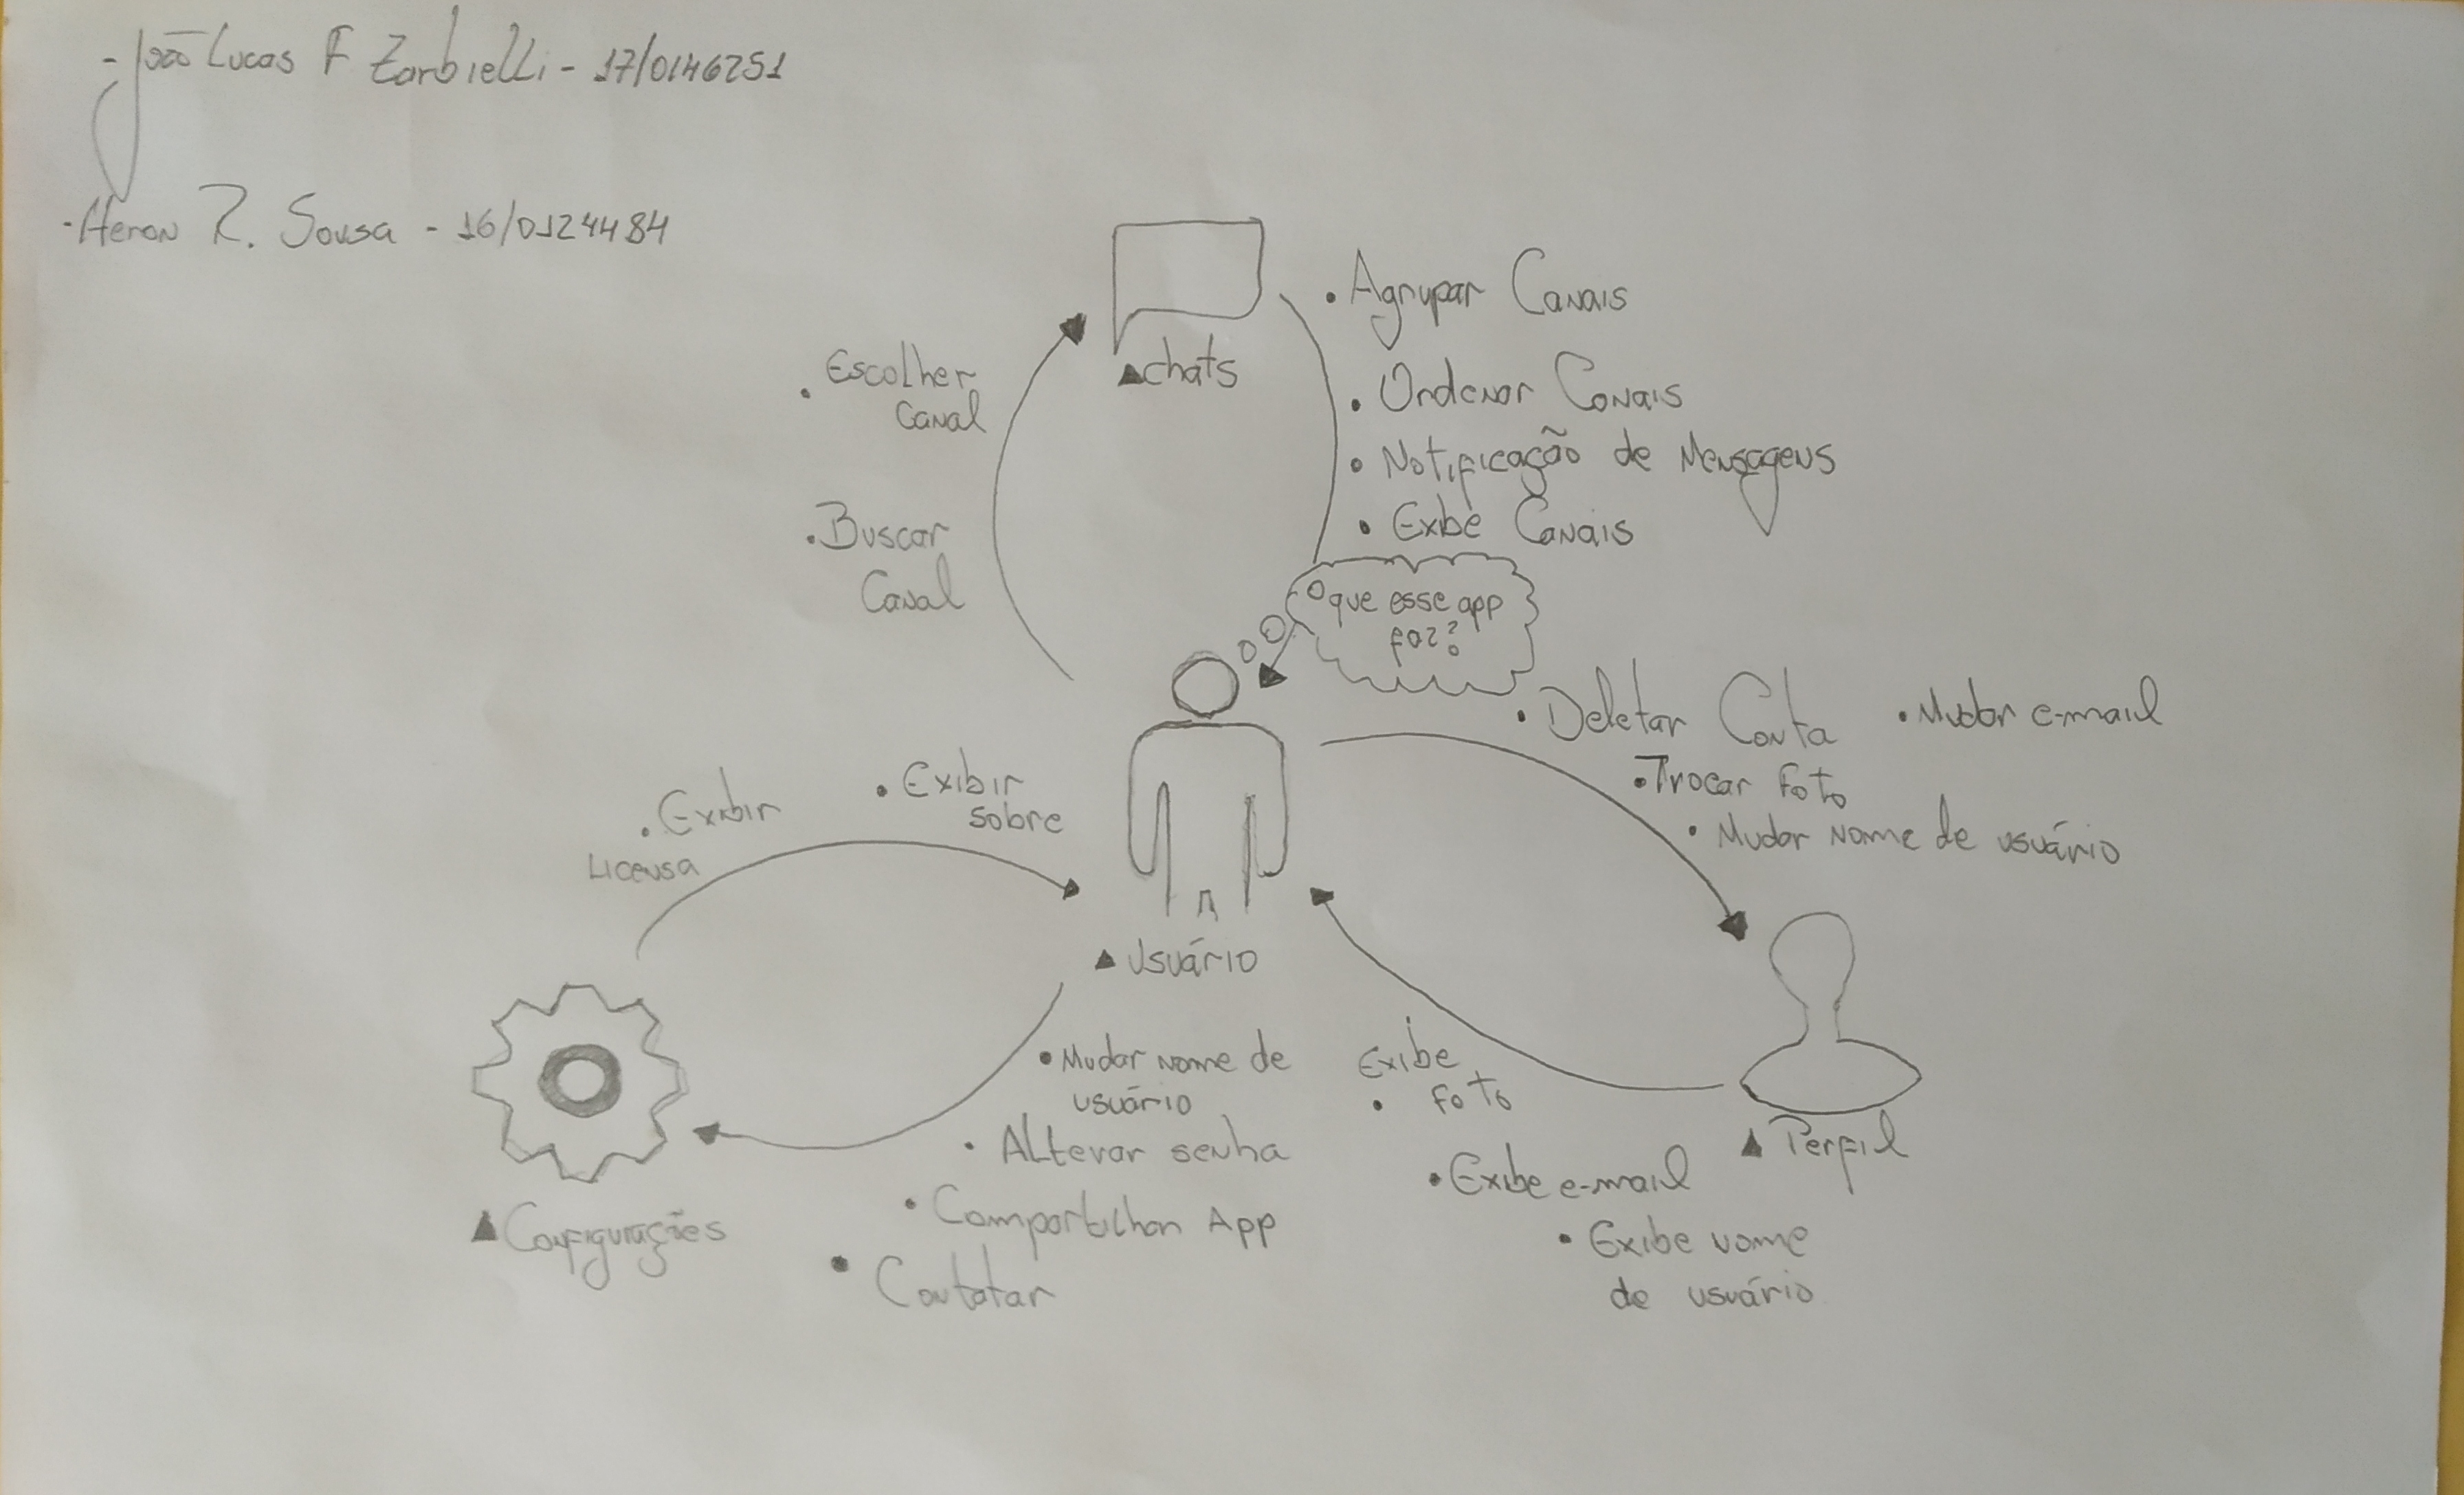 - João Lucas F Zarbielli - 17/0146251
- Heron R. Sousa - 16/0124484
▲ chats
• Agrupar Canais
• Ordenar Canais
• Notificação de Mensagens
• Exibe Canais
• Escolher
Canal
• Buscar
Canal
O que esse app
faz?
• Deletar Conta
• Mudar e-mail
• Trocar foto
• Mudar nome de usuário
• Exibir
Licensa
• Exibir
sobre
▲ Usuário
• Mudar nome de
usuário
• Alterar senha
• Compartilhar App
• Contatar
▲ Configurações
Exibe
• foto
• Exibe e-mail
• Exibe nome
de usuário
▲ Perfil